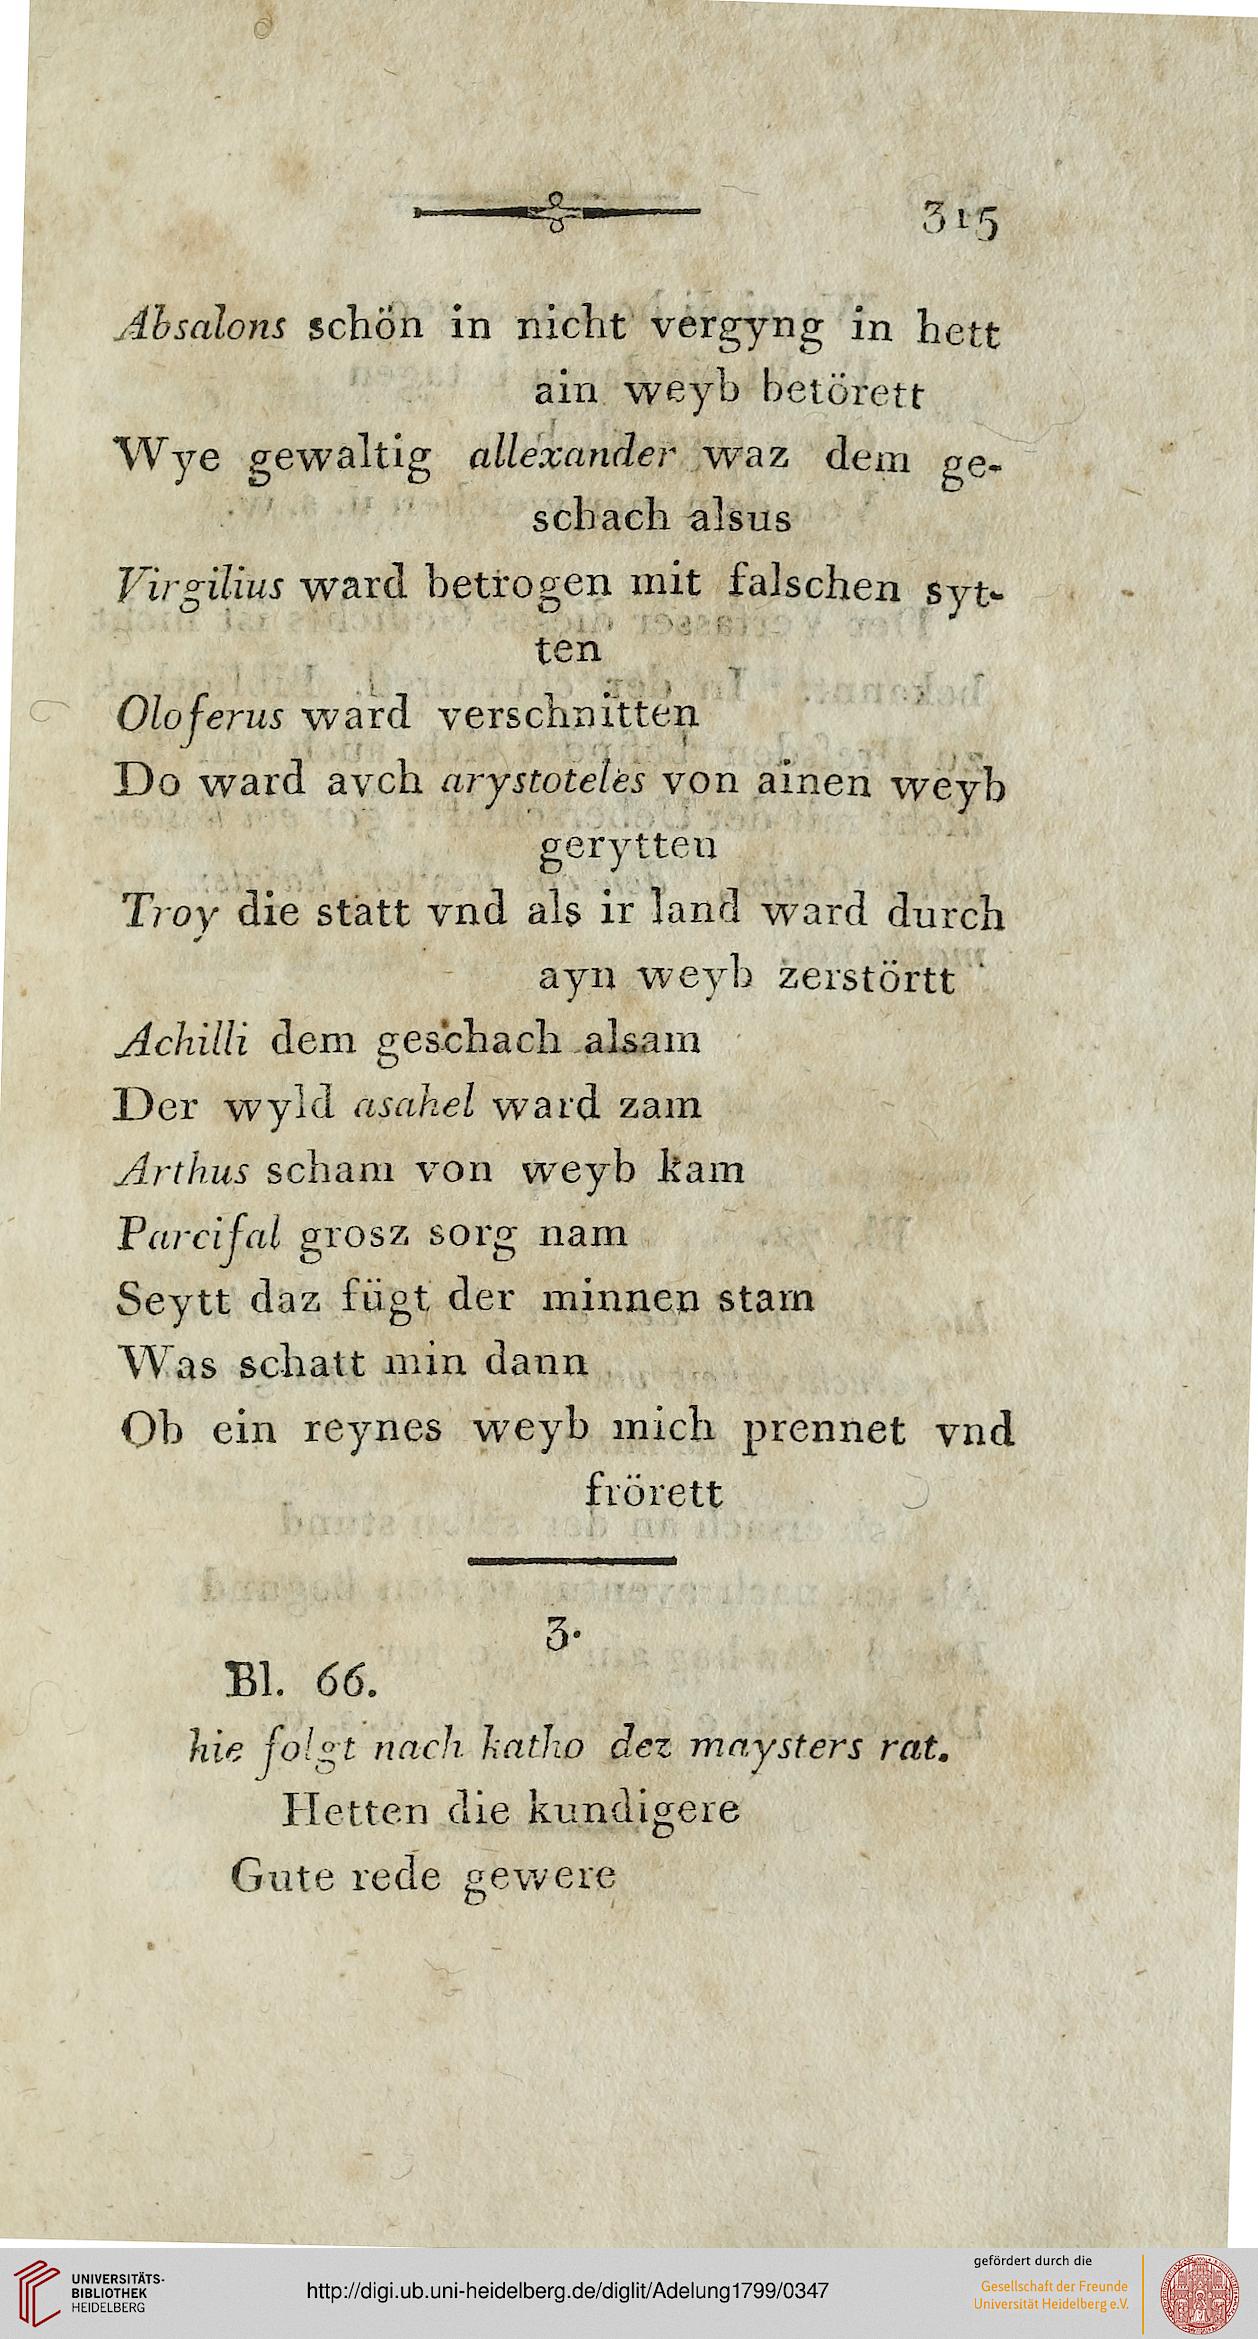 315
Absalons schön in nicht vergyng in hett
ain weyb betörett
Wye gewaltig allexander waz dem ge-
schach alsus
Virgilius ward betrogen mit falschen syt-
ten
Oloferus ward verschnitten
Do ward avch arystoteles von ainen weyb
gerytten
Troy die statt vnd als ir land ward durch
ayn weyb zerstörtt
Achilli dem geschach alsam
Der wyld asahel ward zam
Arthus scham von weyb kam
Parcifal grosz sorg nam
Seytt daz fügt der minnen stam
Was schatt min dann
Ob ein reynes weyb mich prennet vnd
frörett
3.
Bl. 66.
hie folgt nach katho dez maysters rat.
Hetten die kundigere
Gute rede gewere
UNIVERSITÄTS-
BIBLIOTHEK
HEIDELBERG
http://digi.ub.uni-heidelberg.de/diglit/Adelung1799/0347
gefördert durch die
Gesellschaft der Freunde
Universität Heidelberg e.V.